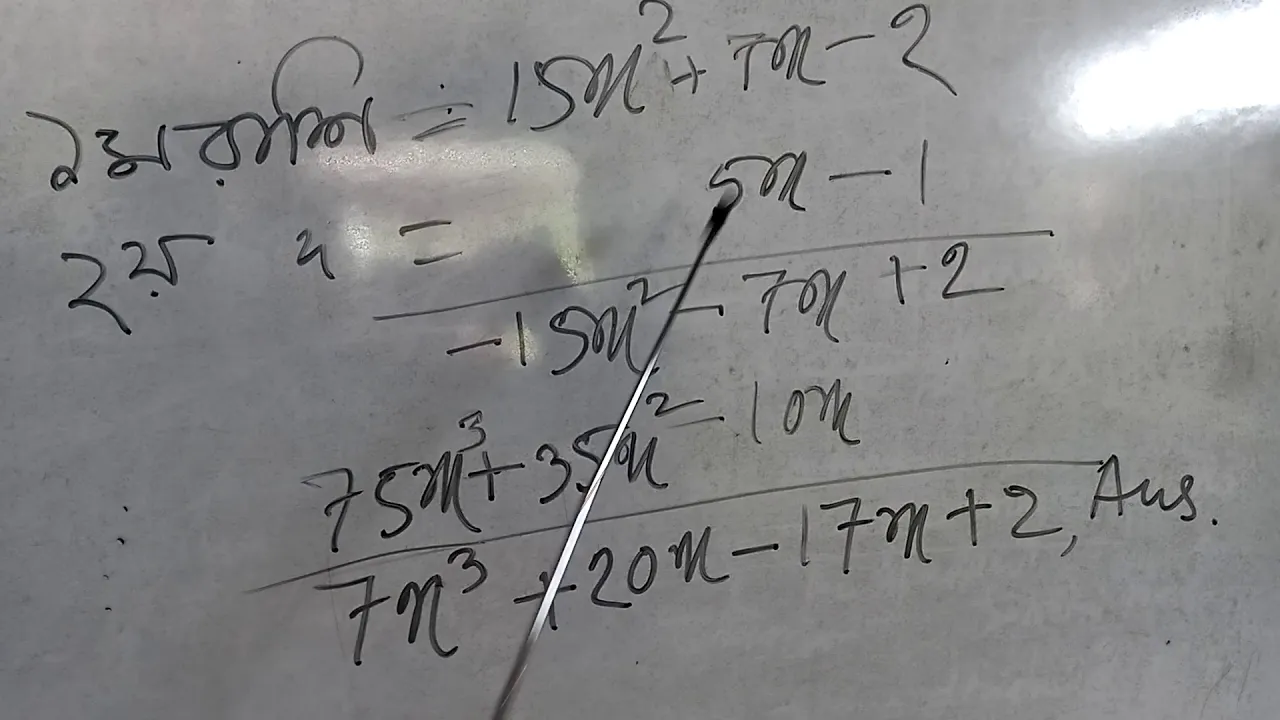 ১ম রাশি = 15x² + 7x - 2
২য় " = 5x - 1
-15x² - 7x + 2
75x³ + 35x² - 10x
7x³ + 20x - 17x + 2, Ans.